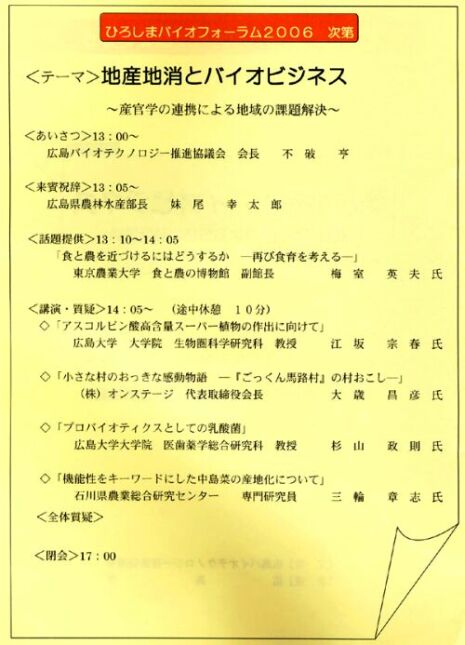 ひろしまバイオフォーラム2006 次第
＜テーマ＞地産地消とバイオビジネス
～産官学の連携による地域の課題解決～
＜あいさつ＞13：00～
広島バイオテクノロジー推進協議会 会長 不破 亨
＜来賓祝辞＞13：05～
広島県農林水産部長 妹尾 幸太郎
＜話題提供＞13：10～14：05
「食と農を近づけるにはどうするか ―再び食育を考える―」
東京農業大学 食と農の博物館 副館長 梅室 英夫氏
＜講演・質疑＞14：05～ （途中休憩 10分）
◇「アスコルビン酸高含量スーパー植物の作出に向けて」
広島大学 大学院 生物圏科学研究科 教授 江坂 宗春氏
◇「小さな村のおっきな感動物語 ―『ごっくん馬路村』の村おこし―」
（株）オンステージ 代表取締役会長 大歳 昌彦氏
◇「プロバイオティクスとしての乳酸菌」
広島大学大学院 医歯薬学総合研究科 教授 杉山 政則氏
◇「機能性をキーワードにした中島菜の産地化について」
石川県農業総合研究センター 専門研究員 三輪 章志氏
＜全体質疑＞
＜閉会＞17：00